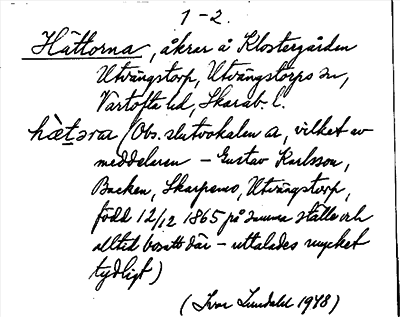 1-2.
Hättorna, åkrar å Klostergården
Utvängstorp, Utvängstorps sn,
Vartofta hd, Skarab. l.
hàtəra (Obs. slutvokalen a, vilket av
meddelaren - Gustav Karlsson,
Backen, Skarpenes, Utvängstorp,
född 12/12 1865 på samma ställe och
alltid bosatt där - uttalades mycket
tydligt)
(Ivar Lundahl 1948)